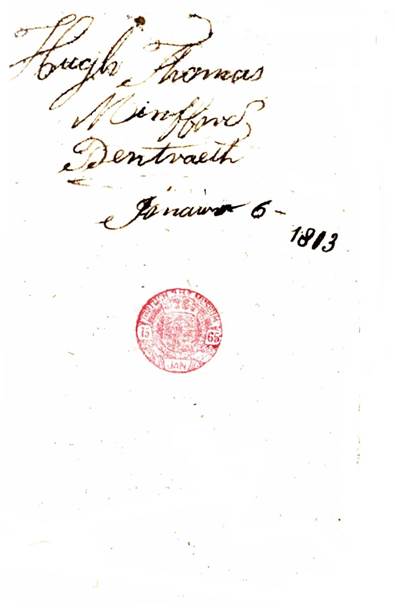 Hugh Thomas
Minfford
Pentraeth
Janaiwr 6 -
1813
15 65
JAN